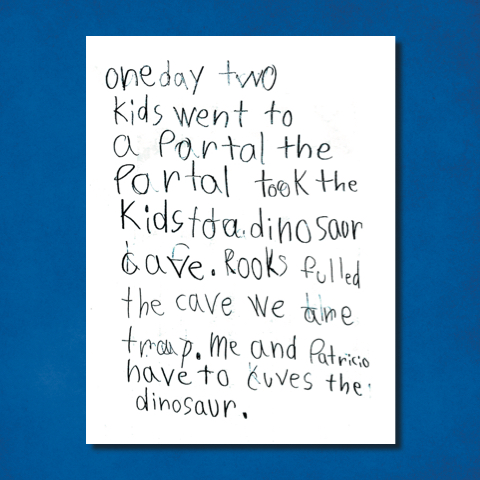 oneday two
kids went to
a Portal the
Portal took the
Kids to a. dinosaur
cave. Rooks fulled
the cave we are
traup. Me and Patricio
have to cuves the
dinosaur.